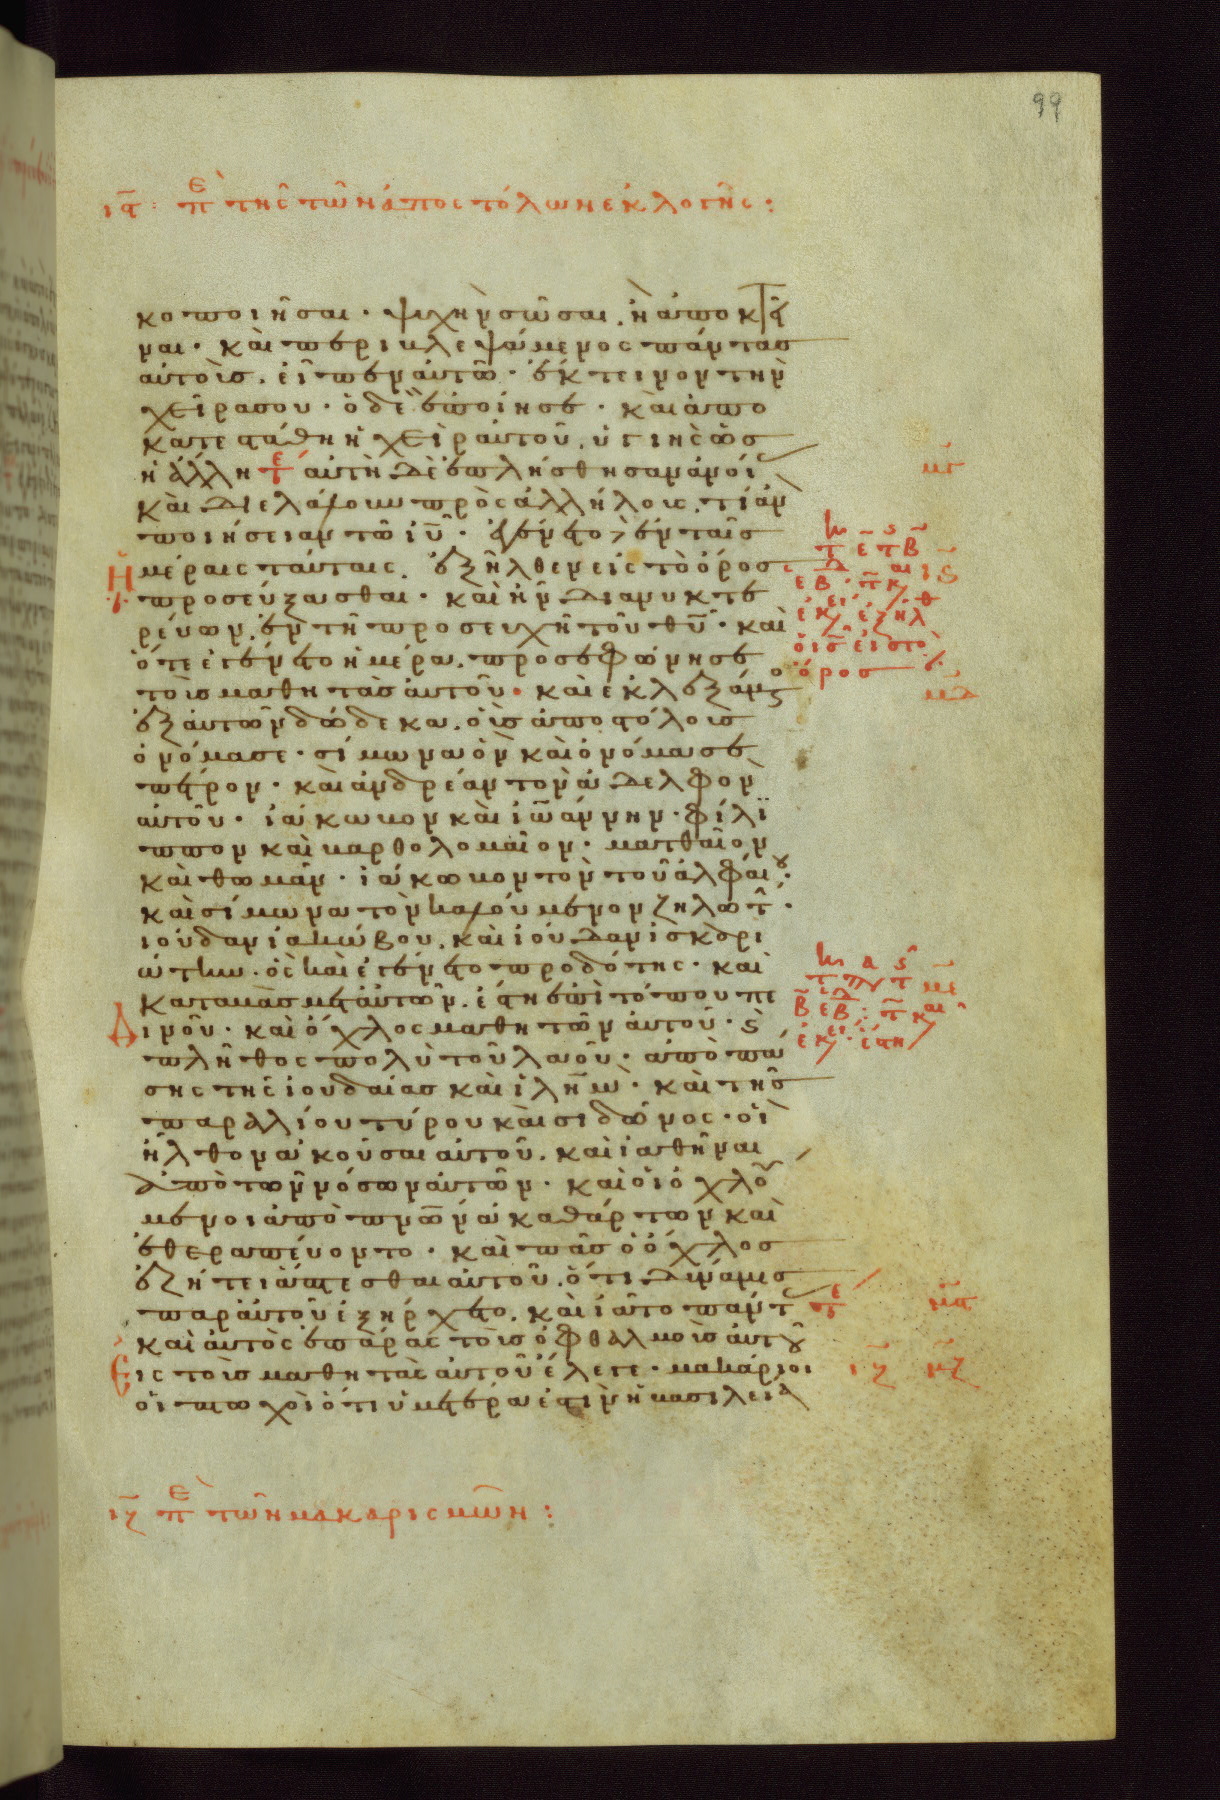 99
ιϛ: πε τῆς τῶν ἀποστόλων ἐκλογῆς:
κοποιῆσαι· ψυχὴν σῶσαι, ἢ ἀποκτεῖ
ναι· καὶ περιβλεψάμενος πάντας
αὐτοὺς, εἶπεν αὐτῶ· ἔκτεινον τὴν
χεῖρα σου· ὁ δὲ ἐποίησε· καὶ ἀπο
κατεστάθη ἡ χεὶρ αὐτοῦ, ὑγιὴς ὡς
ἡ ἄλλη τε αὐτοὶ δὲ ἐπλήσθησαν ἀνοί
καὶ διελάλουν πρὸς ἀλλήλους, τί ἂν
ποιήσειαν τῶ ιῦ· ἐγένετο δὲ ἐν ταῖς
ἡμέραις ταύταις, ἐξῆλθεν εἰς τὸ ὄρος
προσεύξασθαι· καὶ ἦν διανυκτε
ρεύων, ἐν τῆ προσευχῆ τοῦ θυ· καὶ
ὅτε ἐγένετο ἡμέρα, προσεφώνησε
τοὺς μαθητὰς αὐτοῦ· καὶ ἐκλεξάμενος
ἐξ αὐτῶν δώδεκα, οὓς ἀποστόλους
ὠνόμασε· σίμωνα ὃν καὶ ὠνόμασε
πέτρον· καὶ ἀνδρέαν τὸν ἀδελφὸν
αὐτοῦ· ἰάκωβον καὶ ἰωάννην· φίλι
ππον καὶ βαρθολομαῖον· ματθαῖον
καὶ θωμᾶν· ἰάκωβον τὸν τοῦ ἀλφαίου·
καὶ σίμωνα τὸν καλούμενον ζηλωτ·
ἰούδαν ἰακώβου, καὶ ἰούδαν ἰσκαρι
ώτην· ὃς καὶ ἐγένετο προδότης· καὶ
καταβὰς μετ αὐτῶν, ἔστη ἐπὶ τόπου πε
δινοῦ· καὶ ὄχλος μαθητῶν αὐτοῦ· ϗ
πλῆθος πολὺ τοῦ λαοῦ· ἀπὸ πά
σης τῆς ἰουδαίας καὶ ιλημ· καὶ τῆς
παραλίου τύρου καὶ σιδῶνος· οἳ
ἦλθον ἀκοῦσαι αὐτοῦ, καὶ ἰαθῆναι
ἀπὸ τῶν νόσων αὐτῶν· καὶ οἱ ὀχλού
μενοι ἀπὸ πνῶν ἀκαθάρτων καὶ
ἐθεραπεύοντο· καὶ πᾶς ὁ ὄχλος
ἐζήτει ἅπτεσθαι αὐτοῦ, ὅτι δύναμις
παρ αὐτοῦ ἐξήρχετο, καὶ ἰᾶτο πάντ τε
καὶ αὐτὸς ἐπάρας τοὺς ὀφθαλμοὺς αὐτοῦ
εἰς τοὺς μαθητὰς αὐτοῦ ἔλεγε· μακάριοι
οἱ πτωχοὶ ὅτι ὑμετέρα ἐστὶν ἡ βασιλεία
ιζ πε τῶν μακαρισμῶν:
μγ
ιϛ
ὄρος
μδ
με
μϛ
ιζ μζ